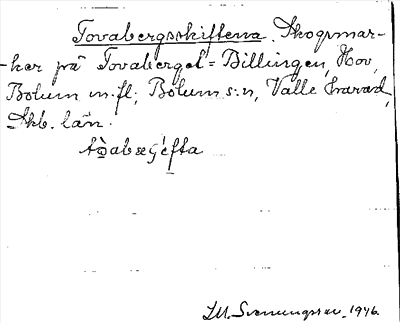 Tovabergsskiftena. Skogsmar-
-ker på Tovaberget = Billingen, Hov,
Bolum m. fl; Bolum s:n, Valle härad,
Skb. län.
LM. Svenungsson. 1946.